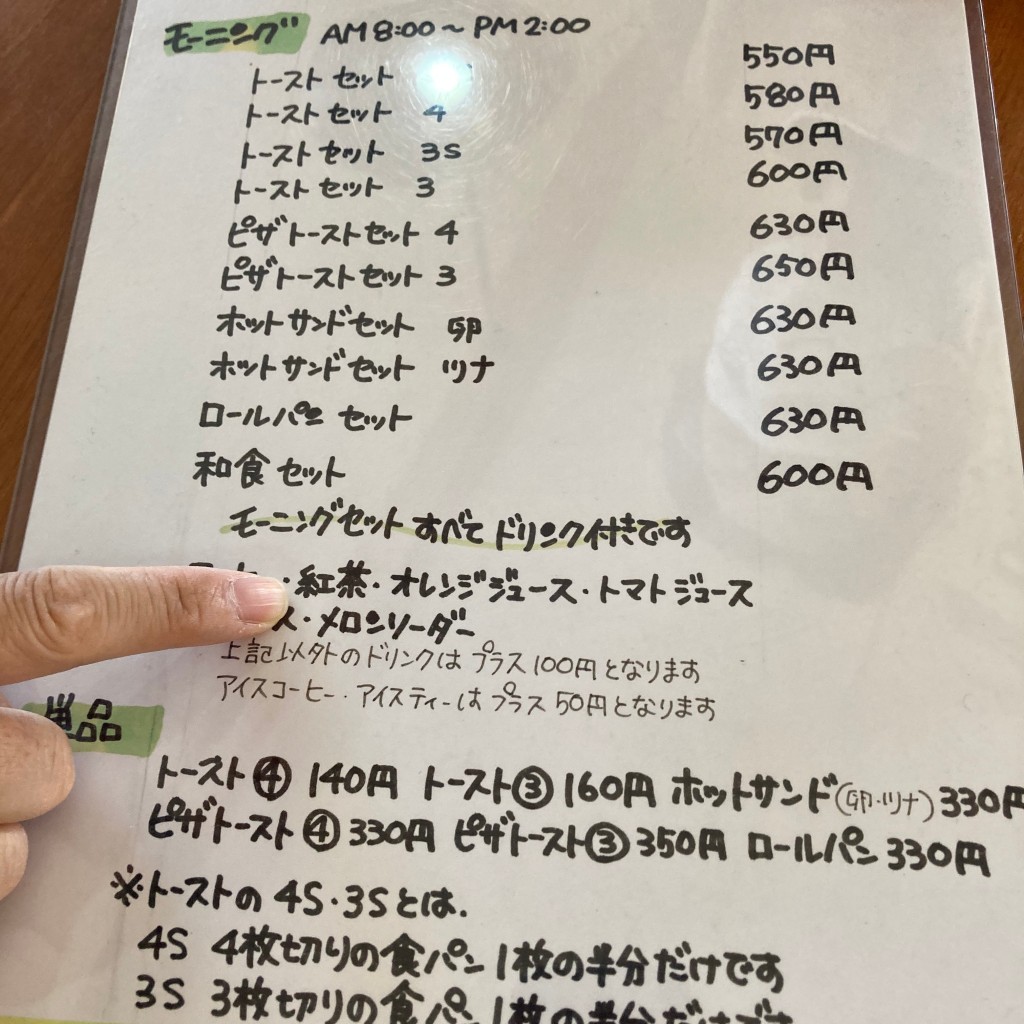 モーニング AM 8:00～PM 2:00
トースト セット 550円
トースト セット 4 580円
トースト セット 3S 570円
トースト セット 3 600円
ピザトーストセット 4 630円
ピザトーストセット 3 650円
ホットサンドセット 卵 630円
ホットサンドセット ツナ 630円
ロールパン セット 630円
和食セット 600円
モーニングセット すべて ドリンク付きです
・紅茶・オレンジジュース・トマトジュース
ス・メロンソーダー
上記以外のドリンクは プラス100円となります
アイスコーヒー・アイスティーは プラス 50円となります
単品
トースト④ 140円 トースト③ 160円 ホットサンド(卵・ツナ) 330円
ピザトースト④ 330円 ピザトースト③ 350円 ロールパン 330円
※トーストの 4S・3Sとは.
4S 4枚切りの食パン 1枚の半分だけです
3S 3枚切りの食パン 1枚の半分だけです